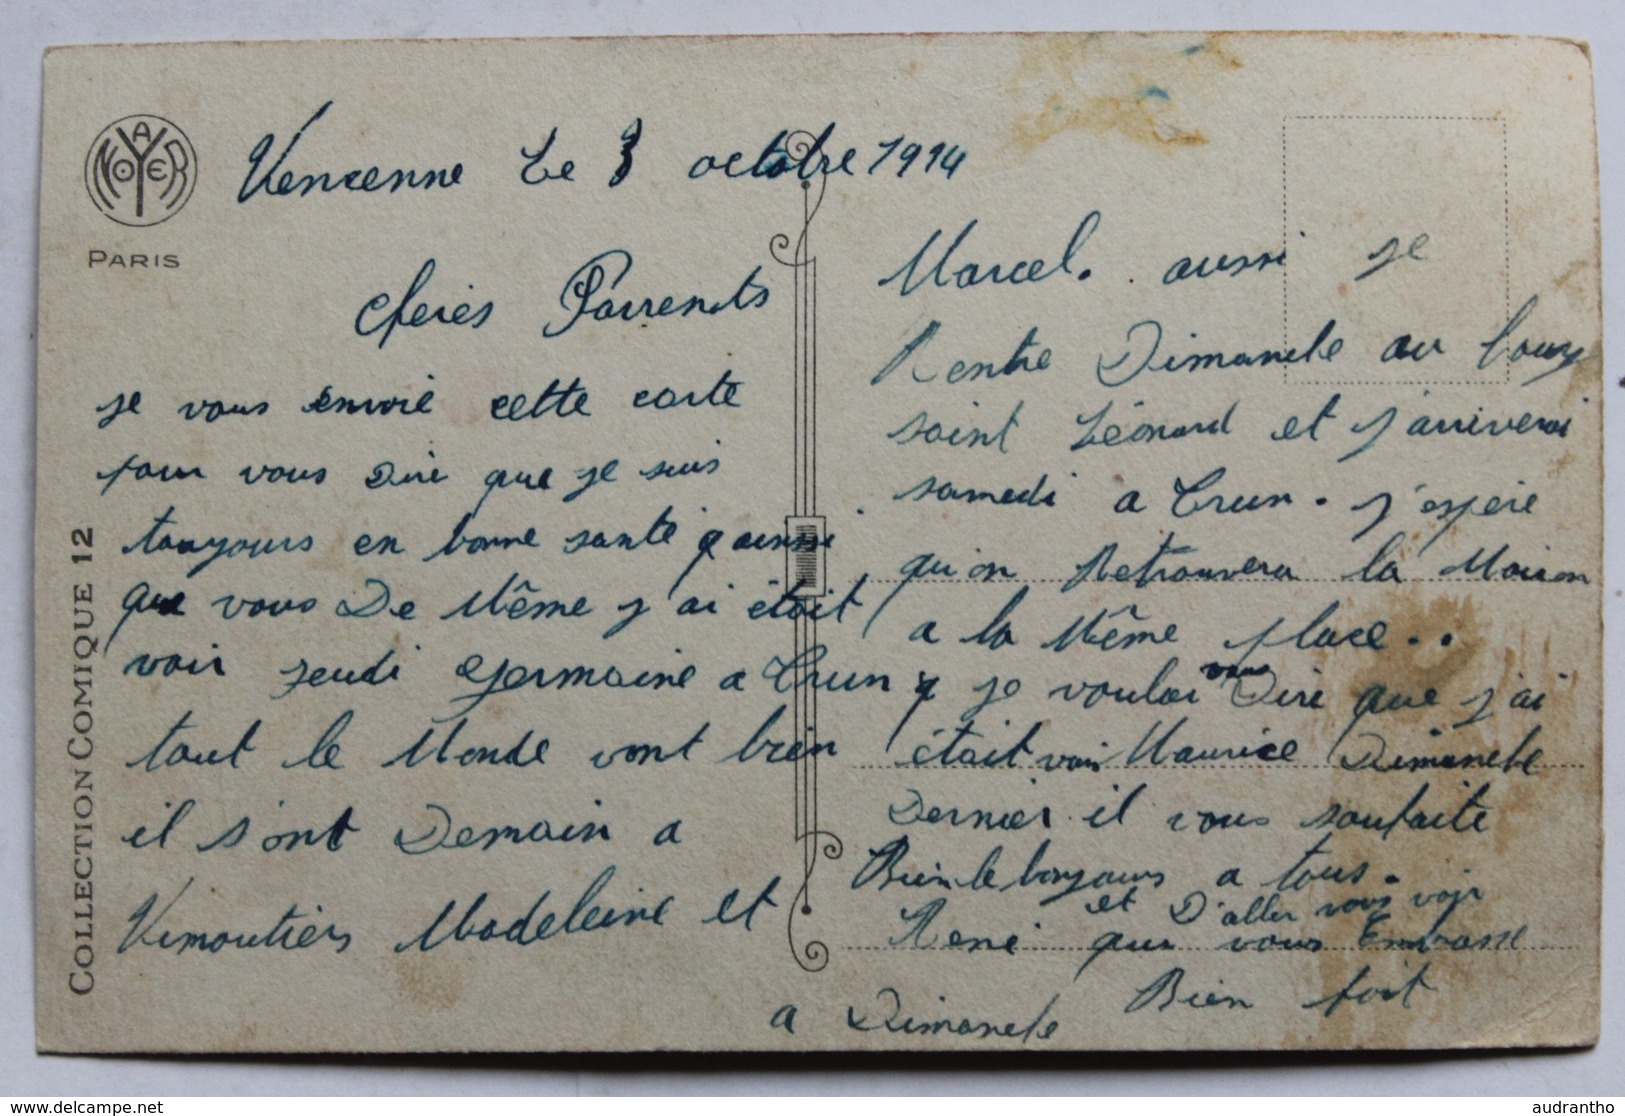 NOYER
PARIS
COLLECTION COMIQUE 12
Vencenne Le 3 octobre 1914
chéries Parrents
je vous envoie cette carte
pour vous Dire que je suis
toujours en bonne santé j'ainssi
que vous De Même j'ai étoit
voir jeudi Germaine a Trun
tout le Monde vont bien
il sont Demain a
Vimoutiers Madeleine et
Marcel. aussi je
Rentre Dimanche au Bourg
saint Léonard et j'arriverai
samedi a Trun. j'espère
qu'on Retrouvera la Maison
a la Même place..
je voulai vous Dire que j'ai
étoit voir Maurice Dimanche
Dernier il vous souhaite
Bien le bonjours a tous.
et D'aller vous voir
René qui vous Embrasse
Bien fort
a Dimanche
audrantho